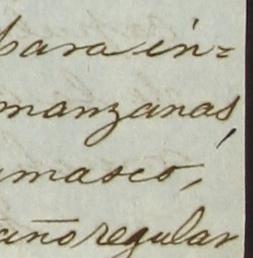 para in=
manzanas
amasco,
año regular